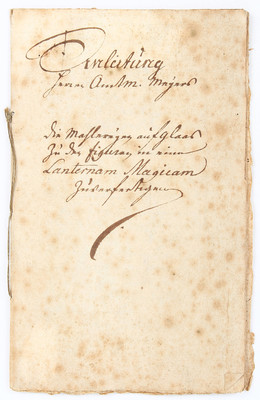 Einleitung
Herrn Amtm: Meyers
Die Mahlereyen auf Glaas
Zu den Figuren in eine
Lanternam Magicam
Zuverfertigen